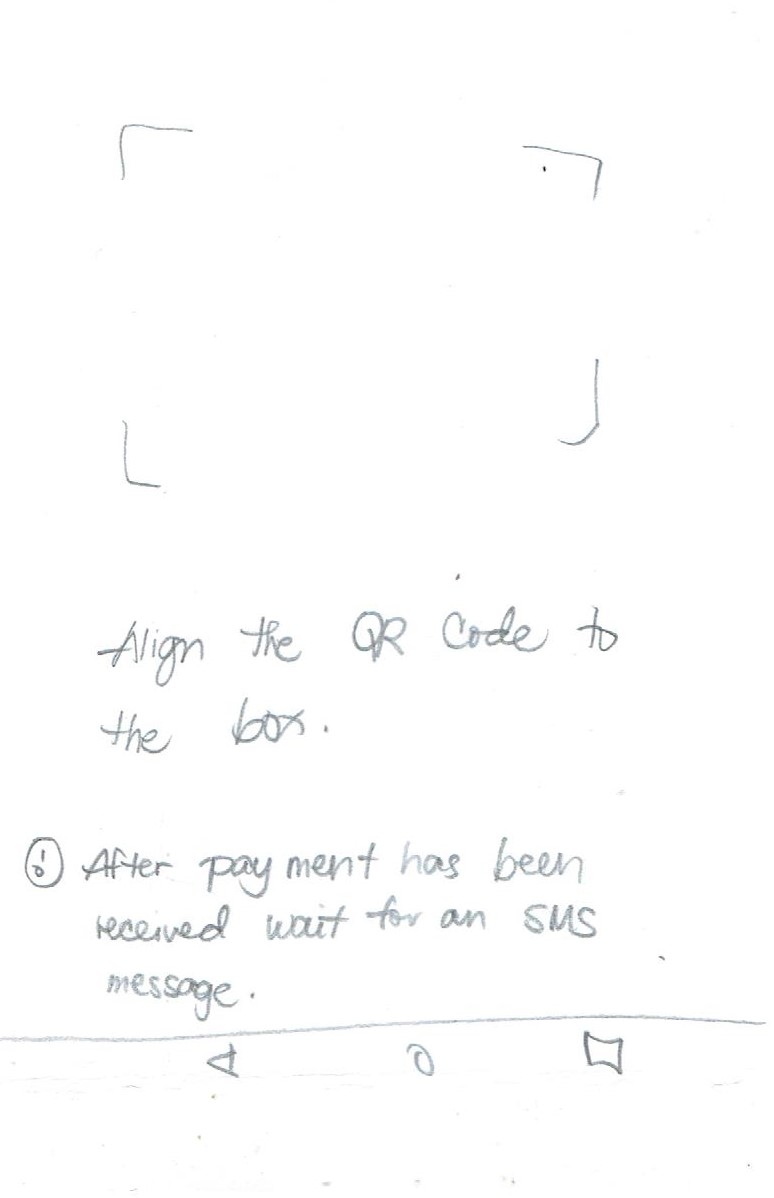 Align the QR Code to
the box.
! After payment has been
received wait for an SMS
message.